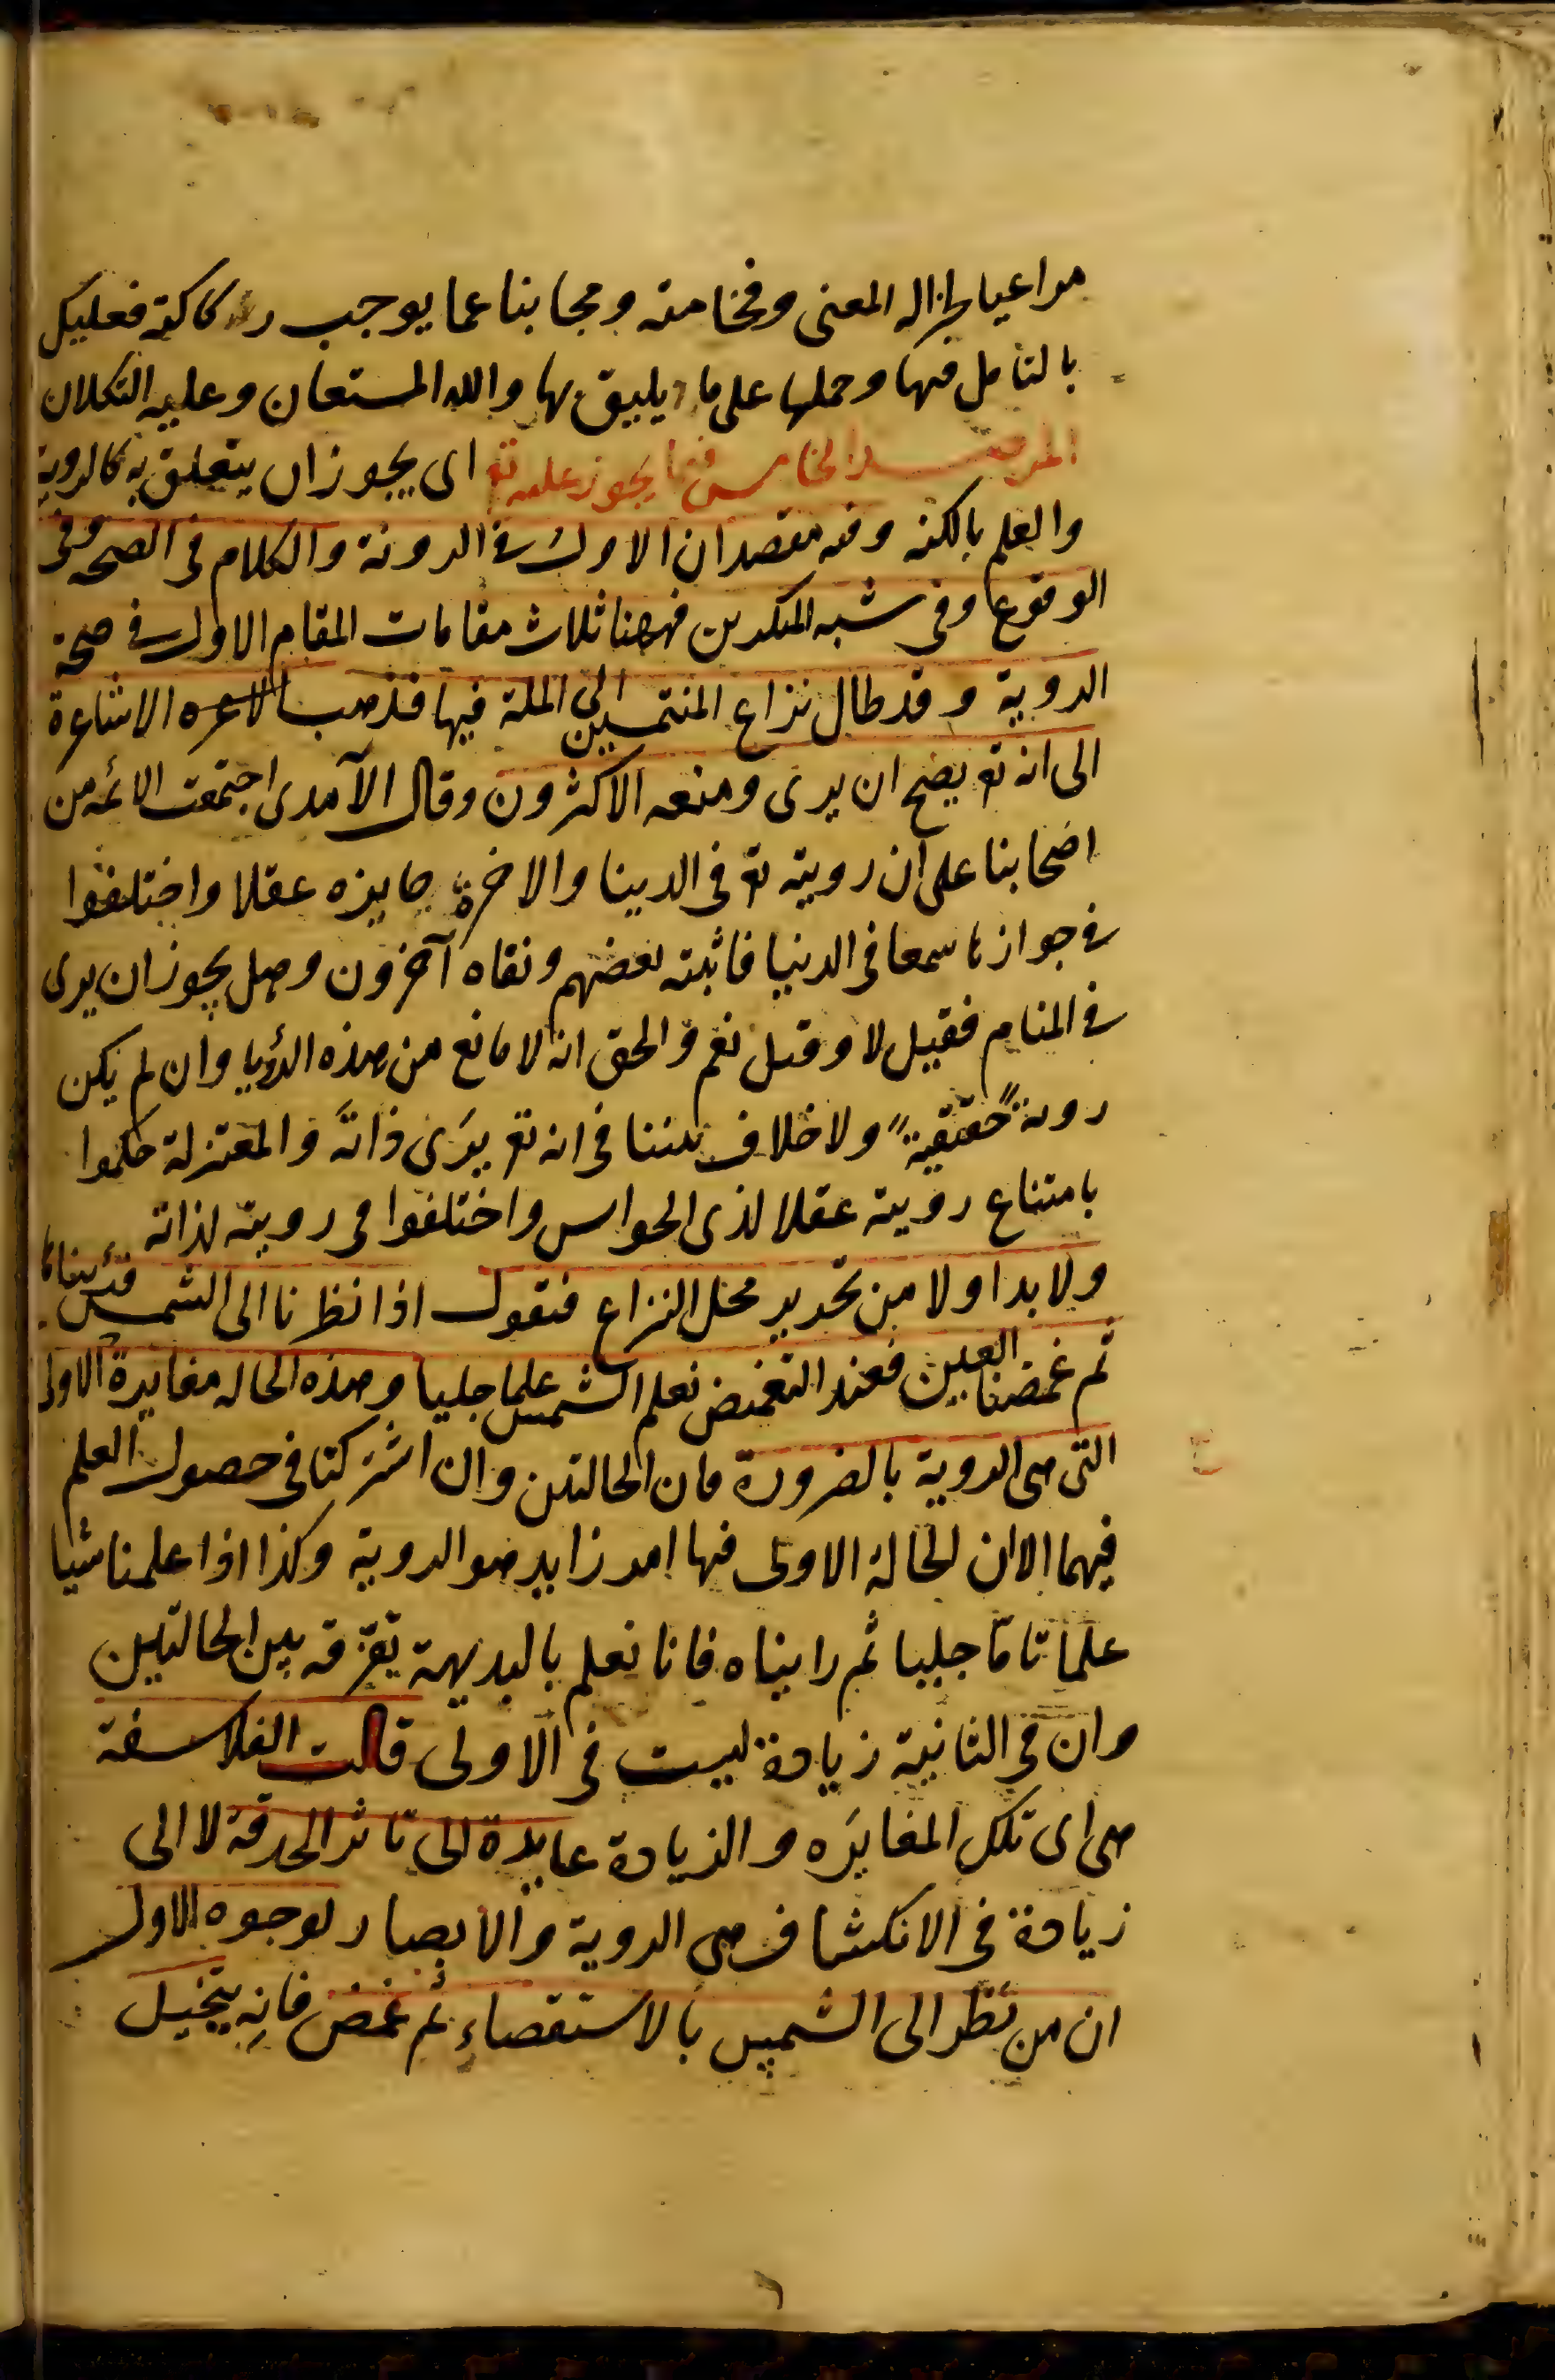 مراعيا لجزاله المعنى وفخامته ومجانبا عما يوجب ركاكته فعليك
بالتأمل فيها وحملها على ما يليق بها والله المستعان وعليه التكلان
المرصد الخامس فيما يجوز عليه تع اى يجوز ان يتعلق به كالروية
والعلم بالكنه وفيه مقصدان الاول فى الروية والكلام فى الصحه وفى
الوقوع وفى شبه المنكرين فههنا ثلاث مقامات المقام الاول فى صحة
الروية وقد طال نزاع المنتمين الى الملة فيها فذهب الاشاعرة
الى انه تع يصح ان يرى ومنعه الاكثرون وقال الآمدى اجتمعت الائمه من
اصحابنا على ان رويته تع فى الدنيا والاخرة جايزه عقلا واختلفوا
فى جوازها سمعا فى الدنيا فاثبته بعضهم ونفاه آخرون وهل يجوز ان يرى
فى المنام فقيل لا وقيل نعم والحق انه لا مانع من هذه الرؤيا وان لم يكن
روية حقيقية ولا خلاف بيننا فى انه تع يرى ذاته والمعتزلة حكموا
بامتناع رويته عقلا لذى الحواس واختلفوا فى رويته لذاته
ولا بد اولا من تحرير محل النزاع فنقول اذا نظرنا الى الشمس فرأيناها
ثم غمضنا العين فعند التغميض نعلم الشمس علما جليا وهذه الحاله مغايرة للاولى
التى هى الروية بالضرورة فان الحالتين وان اشتركتا فى حصول العلم
فيهما الا ان الحالة الاولى فيها امر زايد هو الروية وكذا اذا علمنا شيا
علما تاما جليا ثم رايناه فانا نعلم بالبديهة تفرقه بين الحالتين
وان فى الثانية زيادة ليست فى الاولى قالت الفلاسفة
هى اى تلك المغايره والزيادة عايدة الى تاثر الحدقة لا الى
زيادة فى الانكشاف هى الروية والابصار لوجوه الاول
ان من نظر الى الشمس بالاستقصاء ثم غمض فانه يتخيل